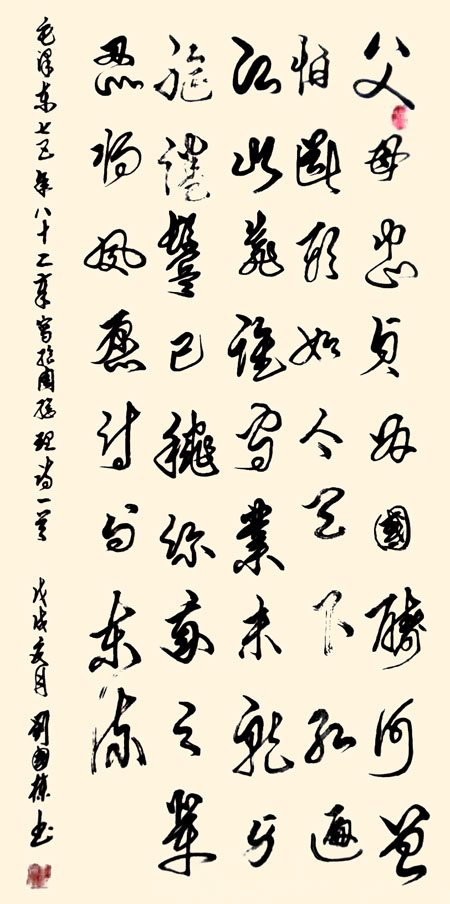 父母忠贞为國酬何曾
怕断头如今天下红遍
江山靠谁守業未就身
躯倦鬓已秋你我之辈
忍将夙愿付与东流
毛泽东七五年八十二岁写给周总理诗一首 戊戌夏月 劉國棟书